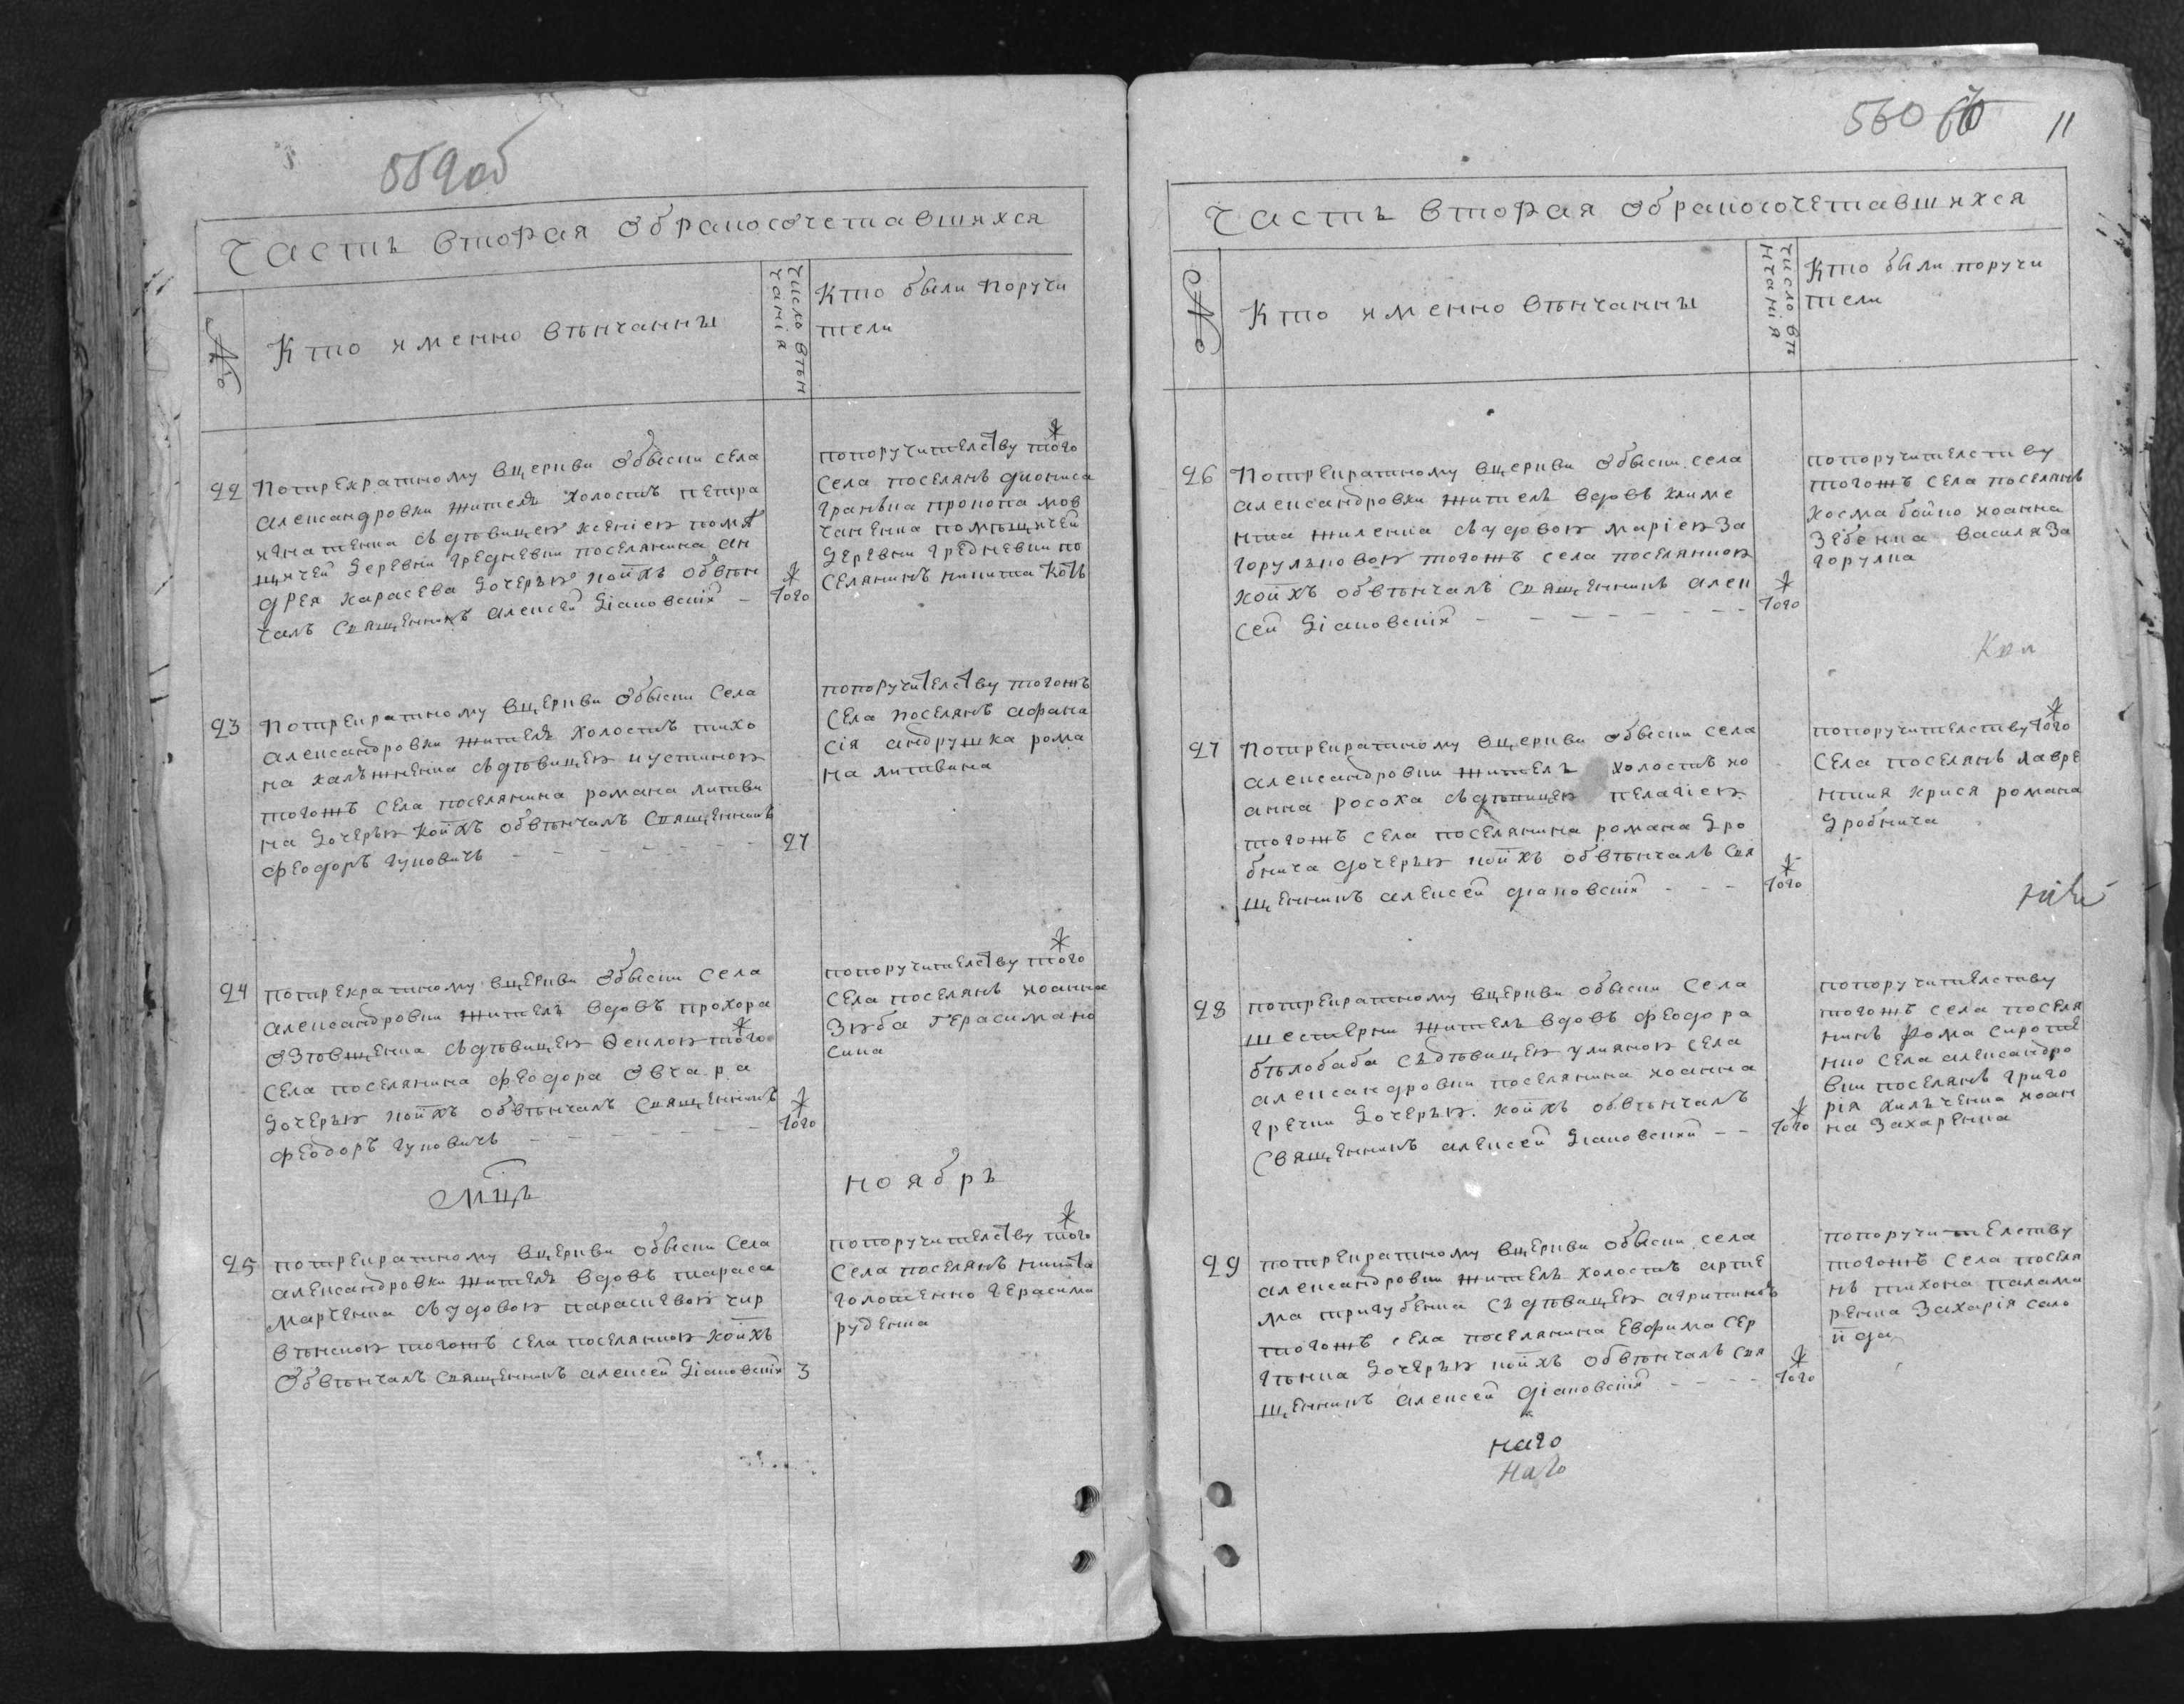 559об
Часть вторая обракосочетавшихся
№
Кто именно вѣнчанны
число вѣн
чанія
Кто были поручи
тели
22
Потрекратному вцеркви обыски села
александровки жителя холостъ петра
игнатенка съ дѣвицею ксеніею помѣ
щичей деревни гредневки поселянина ан
дрея карасева дочерью коихъ обвѣн
чалъ священникъ алексей діаковскій
тогож
попоручителству тогож
села поселянъ диониса
прокопа мов
чаненка помѣщичей
деревни гредневки по
селянинъ никита
23
Потрекратному вцеркви обыски села
александровки жителя холостъ тихо
на калъжненка съ дѣвицею иустиною
тогожъ села поселянина романа литви
на дочерью коихъ обвѣнчалъ священникъ
феодоръ гуковичъ
27
попоручителству тогожъ
села поселянъ афана
сія андрушка рома
на литвина
24
потрекратному вцеркви обыски села
александровки житель вдовъ прохора
съ дѣвицею феклою тогож
села поселянина феодора овчара
дочерью коихъ обвѣнчалъ священникъ
феодоръ гуковичъ
тогож
попоручителству тогож
села поселянъ иоанна
зюба герасима но
сика
мцъ
ноябрь
25
потрекратному вцеркви обыски села
александровки жителя вдовъ тараса
марченка съ удовою параскевою чир
вѣнскою тогожъ села поселянкою коихъ
обвѣнчалъ священникъ алексей діаковскій
3
попоручителству тогож
села поселянъ никита
голотенко герасима
руденка
560
11
Часть вторая обракосочетавшихся
№
Кто именно вѣнчанны
число вѣ
нчанія
Кто были поручи
тели
26
Потрекратному вцеркви обыски села
александровки житель вдовъ климе
нта жиленка съ удовою маріею за
горулъковою тогожъ села поселянкою
коихъ обвѣнчалъ священникъ алек
сей діаковскій
тогож
попоручителству
тогожъ села поселянъ
косма бойко иоанна
зебенка василя за
горулка
27
Потрекратному вцеркви обыски села
александровки житель холостъ ио
анна росоха съ дѣвицею пелагіею
тогожъ села поселянина романа дро
бнича дочерью коихъ обвѣнчалъ свя
щенникъ алексей діаковскій
тогож
попоручителству тогож
села поселянъ лавре
нтия крися романа
дробнича
28
потрекратному вцеркви обыски села
шестерни житель вдовъ феодора
бѣлобаба съ дѣвицею улияною села
александровки поселянина иоанна
гречки дочерью коихъ обвѣнчалъ
священникъ алексей діаковский
тогож
попоручителству
тогожъ села поселя
нинъ фома сироте
нко села александро
вки поселянъ григо
рія хилъченка иоан
на захаренка
29
потрекратному вцеркви обыски села
александровки житель холостъ арте
ма тригубенка съ дѣвицею агрипиною
тогожъ села поселянина евфима сер
гѣнка дочерью коихъ обвѣнчалъ свя
щенникъ алексей діаковскій
тогож
попоручителству
тогожъ села поселя
нъ тихона палама
ренка захарія сало
йда
наго
наго